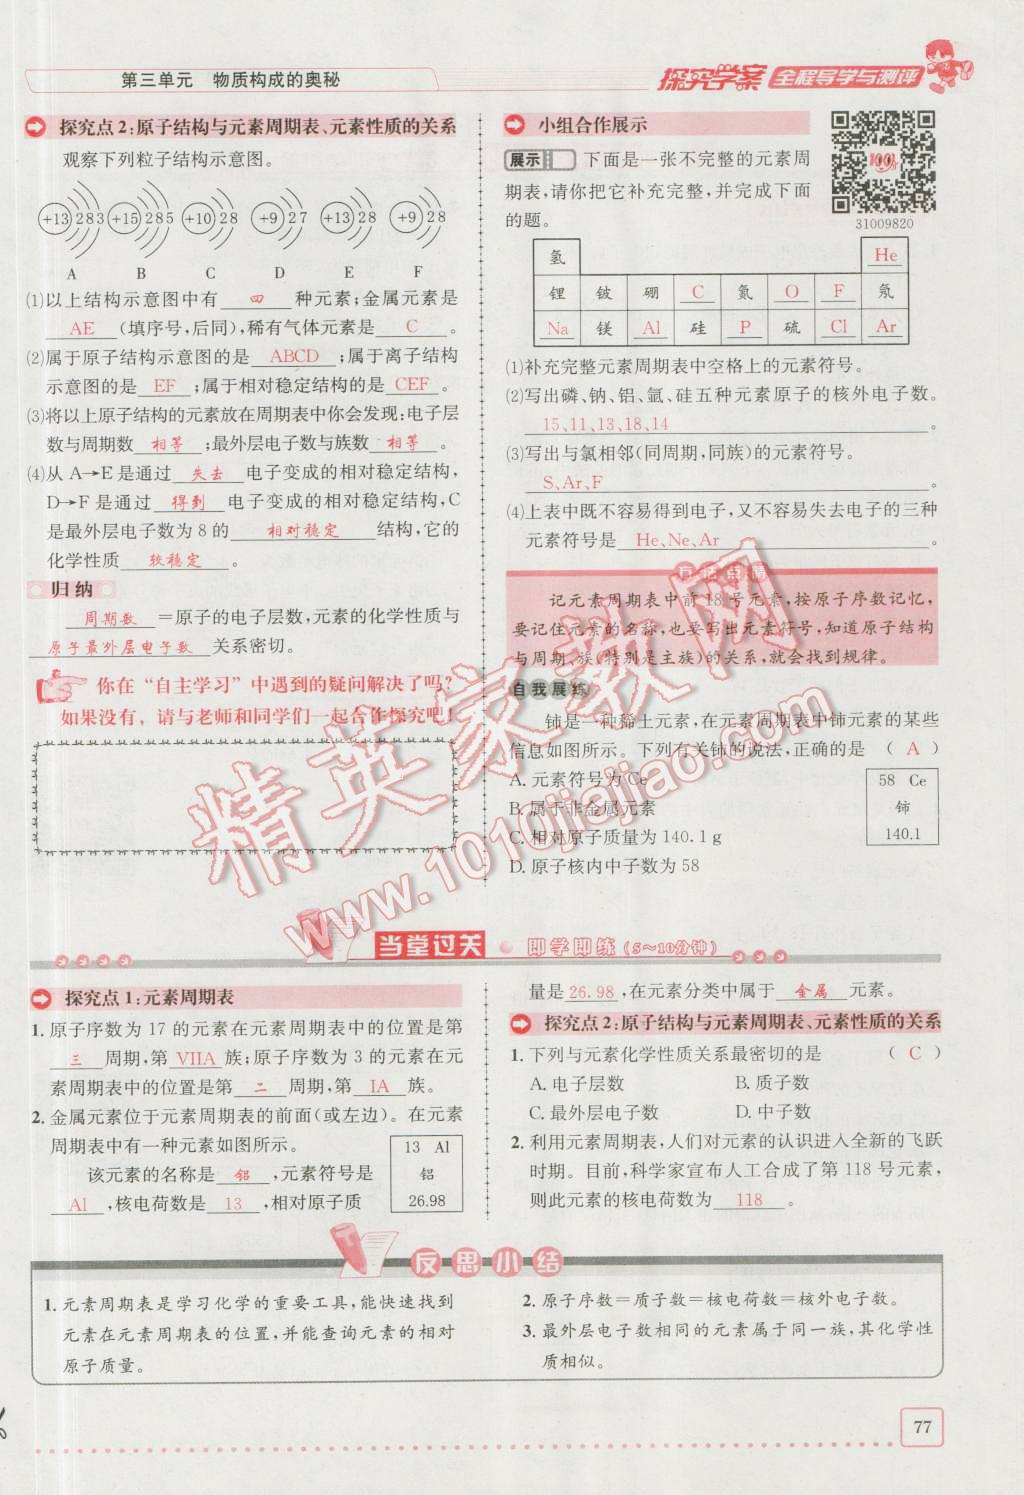 第三单元 物质构成的奥秘
探究学案 全程导学与测评
探究点2:原子结构与元素周期表、元素性质的关系
观察下列粒子结构示意图。
+13 2 8 3 +15 2 8 5 +10 2 8 +9 2 7 +13 2 8 +9 2 8
A B C D E F
(1)以上结构示意图中有 四 种元素;金属元素是
AE (填序号,后同),稀有气体元素是 C 。
(2)属于原子结构示意图的是 ABCD ;属于离子结构
示意图的是 EF ;属于相对稳定结构的是 CEF 。
(3)将以上原子结构的元素放在周期表中你会发现:电子层
数与周期数 相等 ;最外层电子数与族数 相等 。
(4)从A→E是通过 失去 电子变成的相对稳定结构,
D→F是通过 得到 电子变成的相对稳定结构,C
是最外层电子数为8的 相对稳定 结构,它的
化学性质 较稳定 。
归纳
周期数 =原子的电子层数,元素的化学性质与
原子最外层电子数 关系密切。
你在“自主学习”中遇到的疑问解决了吗?
如果没有,请与老师和同学们一起合作探究吧!
小组合作展示
展示 下面是一张不完整的元素周
期表,请你把它补充完整,并完成下面
的题。
31009820
氢 He
锂 铍 硼 C 氮 O F 氖
Na 镁 Al 硅 P 硫 Cl Ar
(1)补充完整元素周期表中空格上的元素符号。
(2)写出磷、钠、铝、氩、硅五种元素原子的核外电子数。
15、11、13、18、14 。
(3)写出与氯相邻(同周期,同族)的元素符号。
S、Ar、F 。
(4)上表中既不容易得到电子,又不容易失去电子的三种
元素符号是 He、Ne、Ar 。
方法点睛
记元素周期表中前18号元素,按原子序数记忆,
要记住元素的名称,也要写出元素符号,知道原子结构
与周期、族(特别是主族)的关系,就会找到规律。
自我展练
铈是一种稀土元素,在元素周期表中铈元素的某些
信息如图所示。下列有关铈的说法,正确的是 ( A )
A.元素符号为Ce
B.属于非金属元素
C.相对原子质量为140.1 g
D.原子核内中子数为58
58 Ce
铈
140.1
精英家教网
www.1010jiajiao.com
当堂过关 即学即练(5~10分钟)
探究点1:元素周期表
1.原子序数为17的元素在元素周期表中的位置是第
三 周期,第 VIIA 族;原子序数为3的元素在元
素周期表中的位置是第 二 周期,第 IA 族。
2.金属元素位于元素周期表的前面(或左边)。在元素
周期表中有一种元素如图所示。
该元素的名称是 铝 ,元素符号是
Al ,核电荷数是 13 ,相对原子质
13 Al
铝
26.98
量是26.98,在元素分类中属于 金属 元素。
探究点2:原子结构与元素周期表、元素性质的关系
1.下列与元素化学性质关系最密切的是 ( C )
A.电子层数 B.质子数
C.最外层电子数 D.中子数
2.利用元素周期表,人们对元素的认识进入全新的飞跃
时期。目前,科学家宣布人工合成了第118号元素,
则此元素的核电荷数为 118 。
反思小结
1.元素周期表是学习化学的重要工具,能快速找到
元素在元素周期表的位置,并能查询元素的相对
原子质量。
2.原子序数=质子数=核电荷数=核外电子数。
3.最外层电子数相同的元素属于同一族,其化学性
质相似。
77